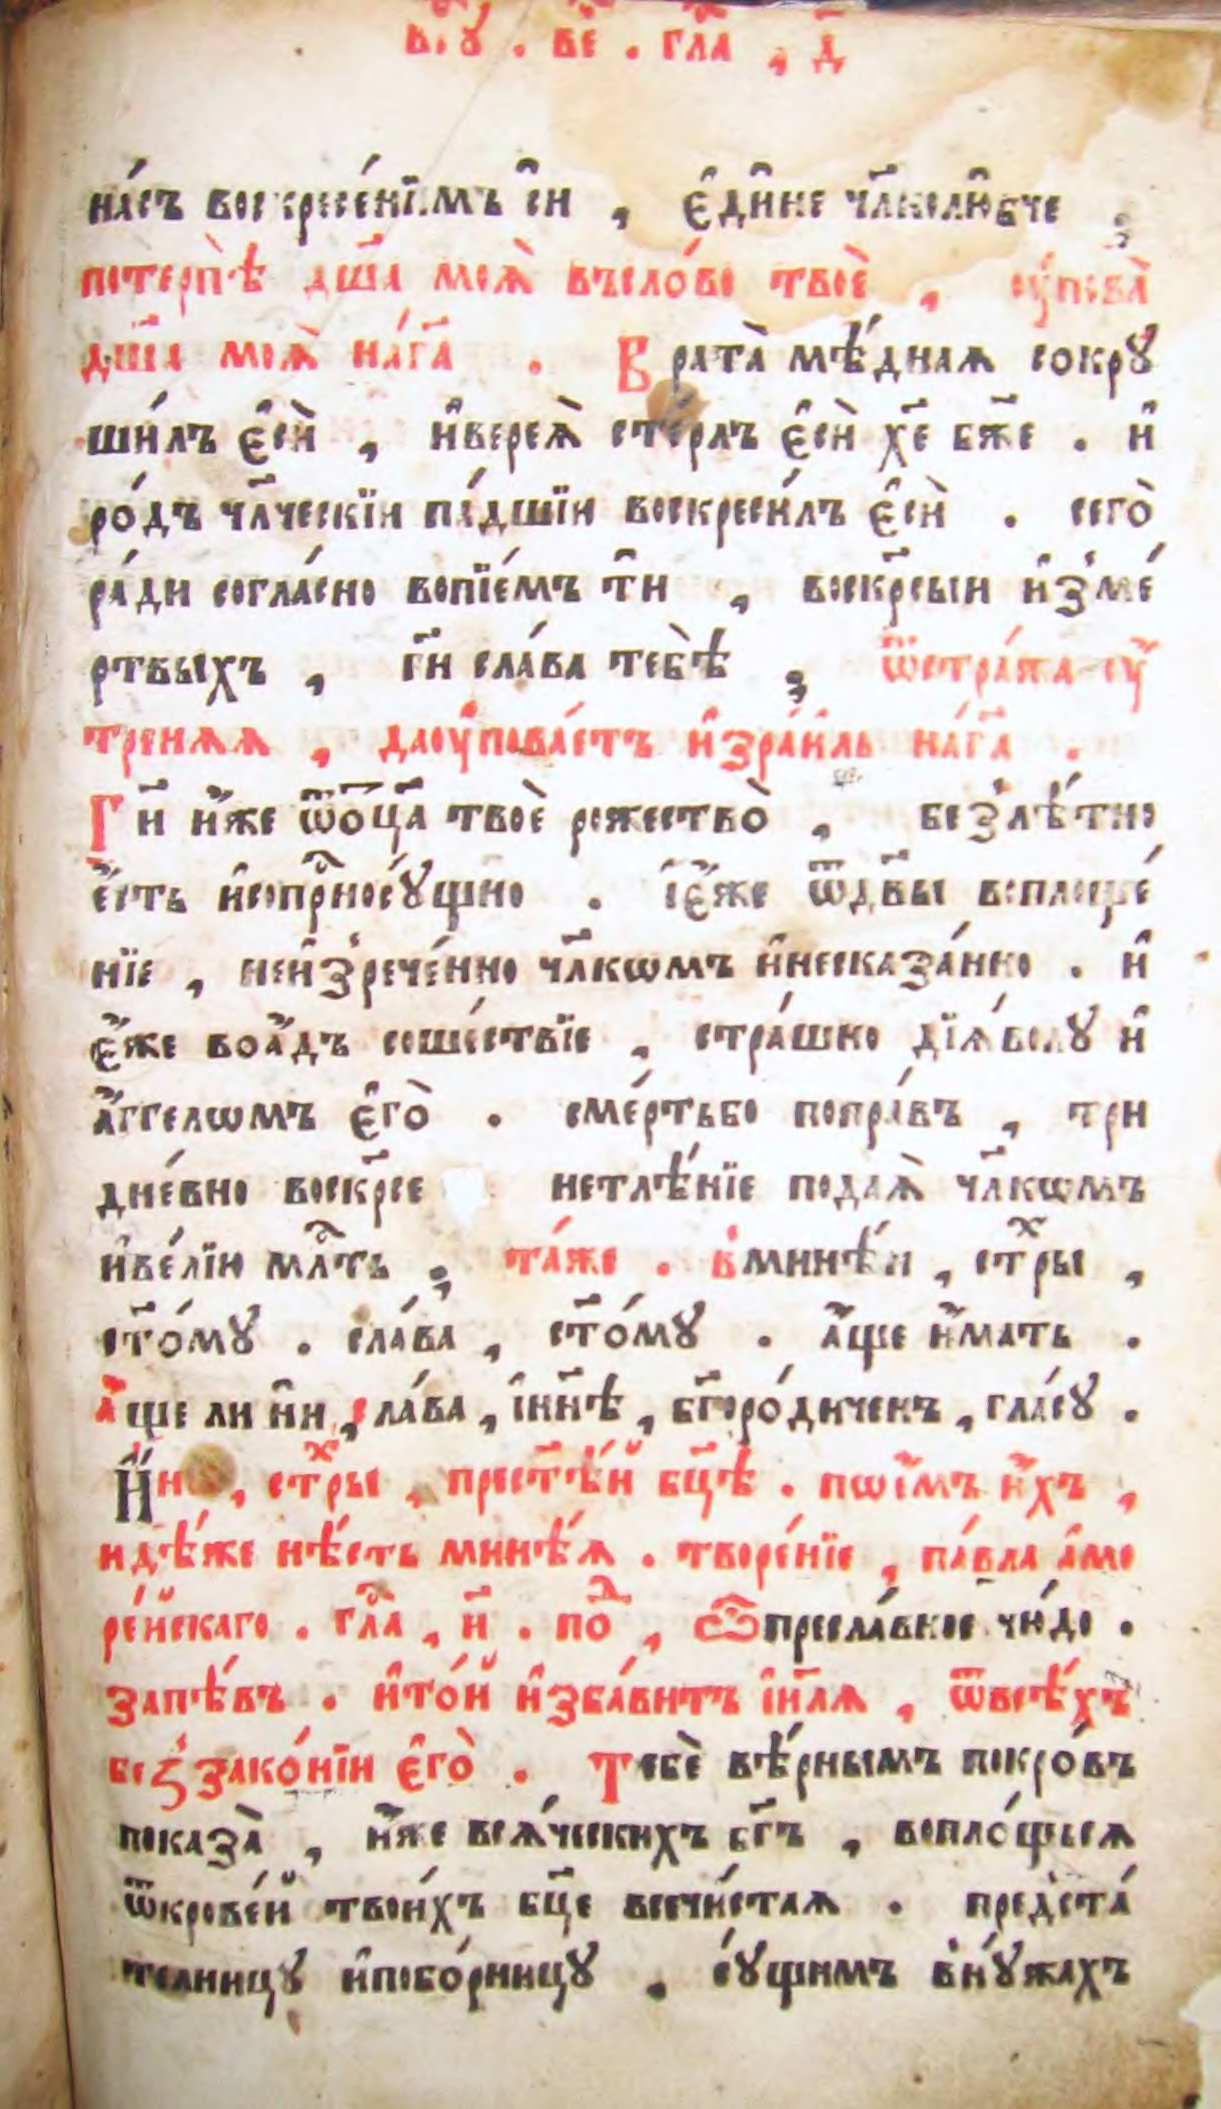 в сꙋ҃ . ве҃ . гл҃а , д҃
на́съ воскресе́нїимъ сѝ , є҆ди́не чл҃колю́бче ;
потерпѣ̀ дш҃а моѧ̀ въсло́во твоѐ , оу҆пова̀
дш҃а моѧ̀ на́гд҃а . Врата̀ мѣ́днаѧ сокрꙋ
ши́лъ є҆сѝ , и҆вереѧ̀ сте́рлъ є҆сѝ хе҃ бж҃е . и҆
ро́дъ чл҃ческїи па́дшїи воскреси́лъ є҆сѝ . сего̀
ра́ди согла́сно вопїе́мъ тѝ , воскр҃сыи и҆зме́
ртвыхъ , гд҃и сла́ва тебѣ̀ ; ѿстра́жа оу҆
тренѧѧ , даоу҆пова́етъ и҆зра́иль на́гд҃а .
Гд҃и и҆́же ѿоц҃а твоѐ рожество̀ , безлѣ́тно
є҆́сть и҆соприⷭ҇носꙋ́щно . і҆є҆́же ѿдв҃ы воплоще́
нїе , неи҆зрече́нно чл҃кѡмъ и҆несказа́нно . и҆
є҆́же воа҆́дъ соше́ствїе , стра́шно дїѧ́волꙋ и҆
а҆́ггелѡмъ є҆го̀ . сме́ртьбо попра́въ , три
дне́вно воскр҃се нетлѣ́нїе подаѧ̀ чл҃кѡмъ
и҆ве́лїю млⷭ҇ть ; та́же . вминѣ́и , стⷯры ,
ст҃о́мꙋ . сла́ва , ст҃о́мꙋ . а҆́ще и҆́мать .
а҆́ще ли нѝ , сла́ва , і҆нн҃ѣ , бг҃оро́диченъ , гла́сꙋ .
стⷯры , прест҃ѣ́й бц҃ѣ . пѡе́мъ и҆́хъ ,
идѣ́же нѣ́сть минѣ́ѧ . творе́нїе , па́вла а҆мо
ре́йскаго . гл҃а , и҃ . поⷣ , ѽпресла́вное чю́до .
запѣ́въ . и҆то́й и҆зба́витъ і҆и҃лѧ , ѿвсѣ́хъ
беззако́нїи є҆го̀ . Тебѐ вѣ́рнымъ покро́въ
показа̀ , и҆́же всѧ́ческихъ бг҃ъ , вопло́щьсѧ
ѿкрове́й твои́хъ бц҃е всечи́стаѧ . предста́
телницꙋ и҆побо́рницꙋ , сꙋ́щимъ внꙋ́жахъ